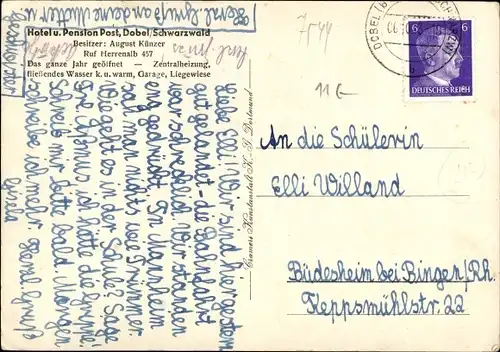 Herzl. Gruß an deine Mutter u.
Geschwister
Hotel u. Pension Post, Dobel/Schwarzwald
Besitzer: August Künzer
Ruf Herrenalb 457
Das ganze Jahr geöffnet — Zentralheizung,
fließendes Wasser k. u. warm, Garage, Liegewiese
Liebe Elli! Wir sind hier gestern
gut gelandet - die Bahnfahrt
war schrecklich. Wir standen
eng gedrückt. In Mannheim
sah man nichts wie Trümmer.
Wie geht es in der Schule? Sage
Frl. ich hätte die Grippe!
Schreib mir bitte bald. Morgen
schreibe ich mehr. Herzl. Gruß
Gisela
Cramers Kunstanstalt K.-G. Dortmund
7544
11 E
DOBEL
6
6
DEUTSCHES REICH
An die Schülerin
Elli Willand
Büdesheim bei Bingen/Rh.
Keppsmühlstr. 22